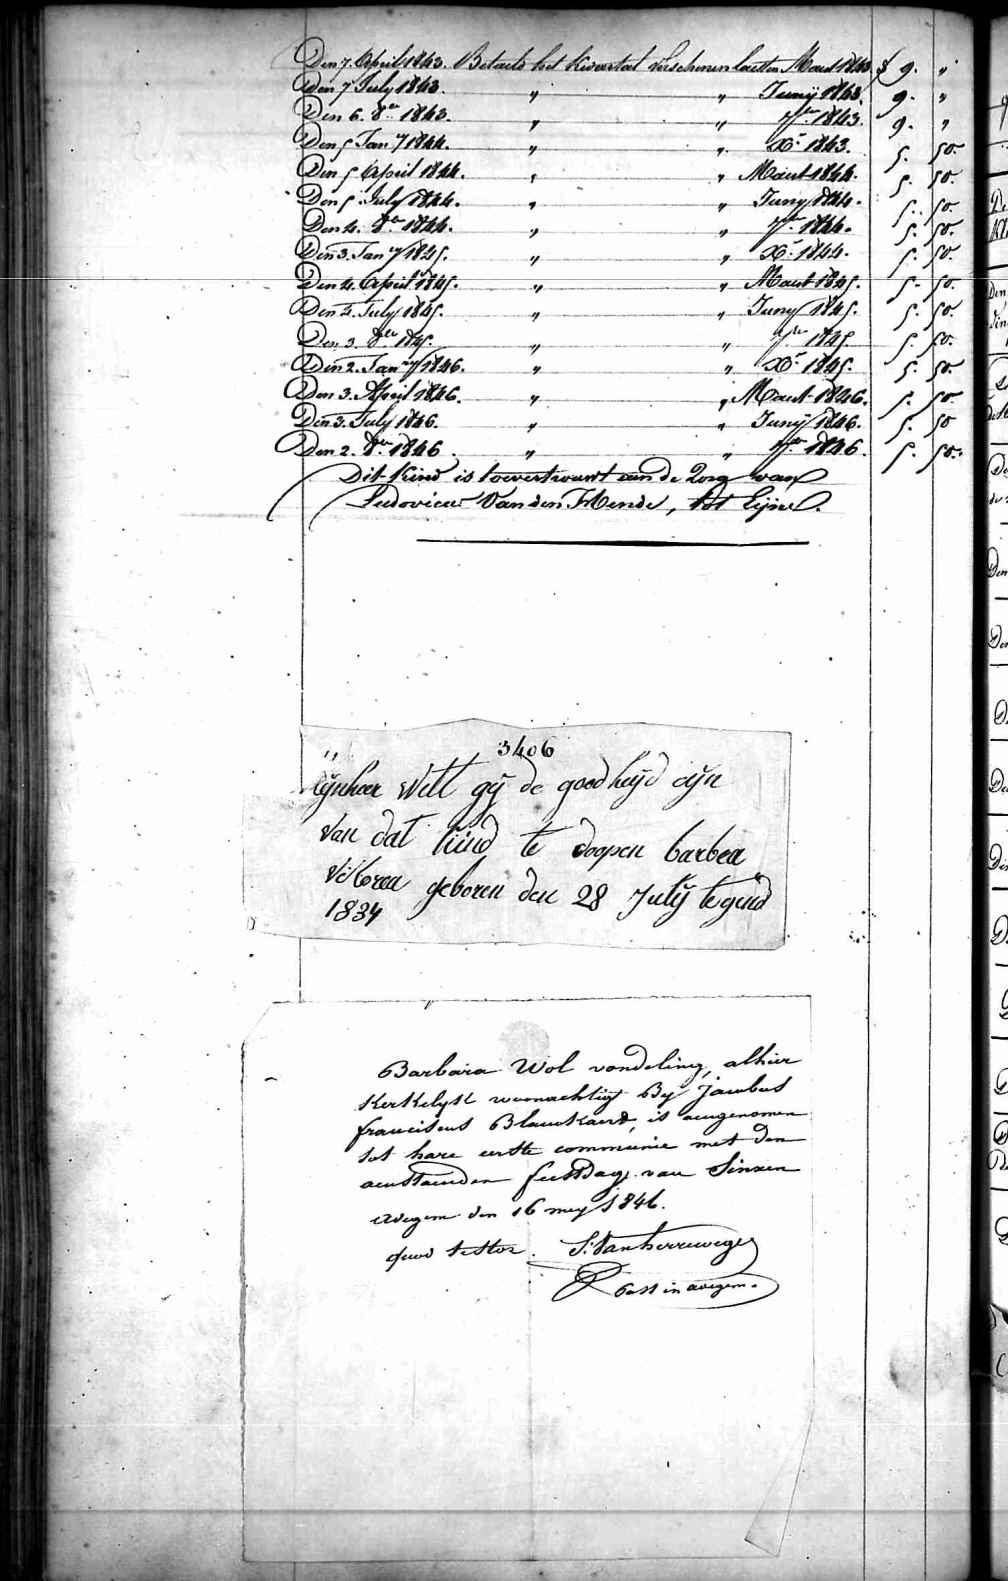 Den 7. April 1843. Betaelt het kwartal verschenen laetsten Maert 1843 f 9. "
Den 7 July 1843. " " Juny 1843. 9. "
Den 6. 8er 1843. " " 7er 1843. 9. "
Den 5 Jany 1844. " " Xr 1843. 5. 50.
Den 5 April 1844. " " Maert 1844. 5. 50.
Den 5 July 1844. " " Juny 1844. 5. 50.
Den 4. 8er 1844. " " 7er 1844. 5. 50.
Den 3. Jany 1845. " " Xr 1844. 5. 50.
Den 4. April 1845. " " Maert 1845. 5. 50.
Den 4. July 1845. " " Juny 1845. 5. 50.
Den 3. 8er 1845. " " 7er 1845 5. 50.
Den 2. Jany 1846. " " Xr 1845. 5. 50.
Den 3. April 1846. " " Maert 1846. 5. 50
Den 3. July 1846. " " Juny 1846. 5. 50
Den 2. 8er 1846. " " 7er 1846. 5. 50.
Dit Kind is toevertrouwt aen de Zorg van
Ludovicus Van den Hende, tot Eyne.
3406
Mynheer Wilt gy de goedheyd zyn
van dat kind te doopen barbea
geboren den 28 July tegend
1834
Barbara Wol vondeling, alhier
Kerkelyk woonachtig By Jacobus
franciscus Blanckaert, is aengenomen
tot hare eerste communie met den
aenstaenden feestdag van Sinxen
Avegem den 16 mey 1846.
quod testor. S. Vanherrewege
Past in avegem.